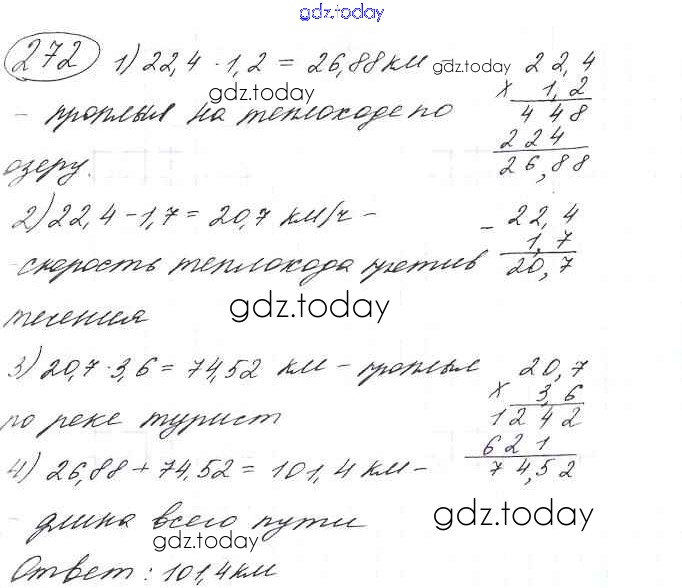 gdz.today
272 1) 22,4 · 1,2 = 26,88 км –
22,4
× 1,2
448
224
26,88
gdz.today
– проплыл на теплоходе по
озеру.
2) 22,4 – 1,7 = 20,7 км/ч –
– 22,4
1,7
20,7
– скорость теплохода против
gdz.today
течения
3) 20,7 · 3,6 = 74,52 км – проплыл
20,7
× 3,6
1242
621
74,52
по реке турист
4) 26,88 + 74,52 = 101,4 км –
длина всего пути
gdz.today
gdz.today
Ответ: 101,4 км